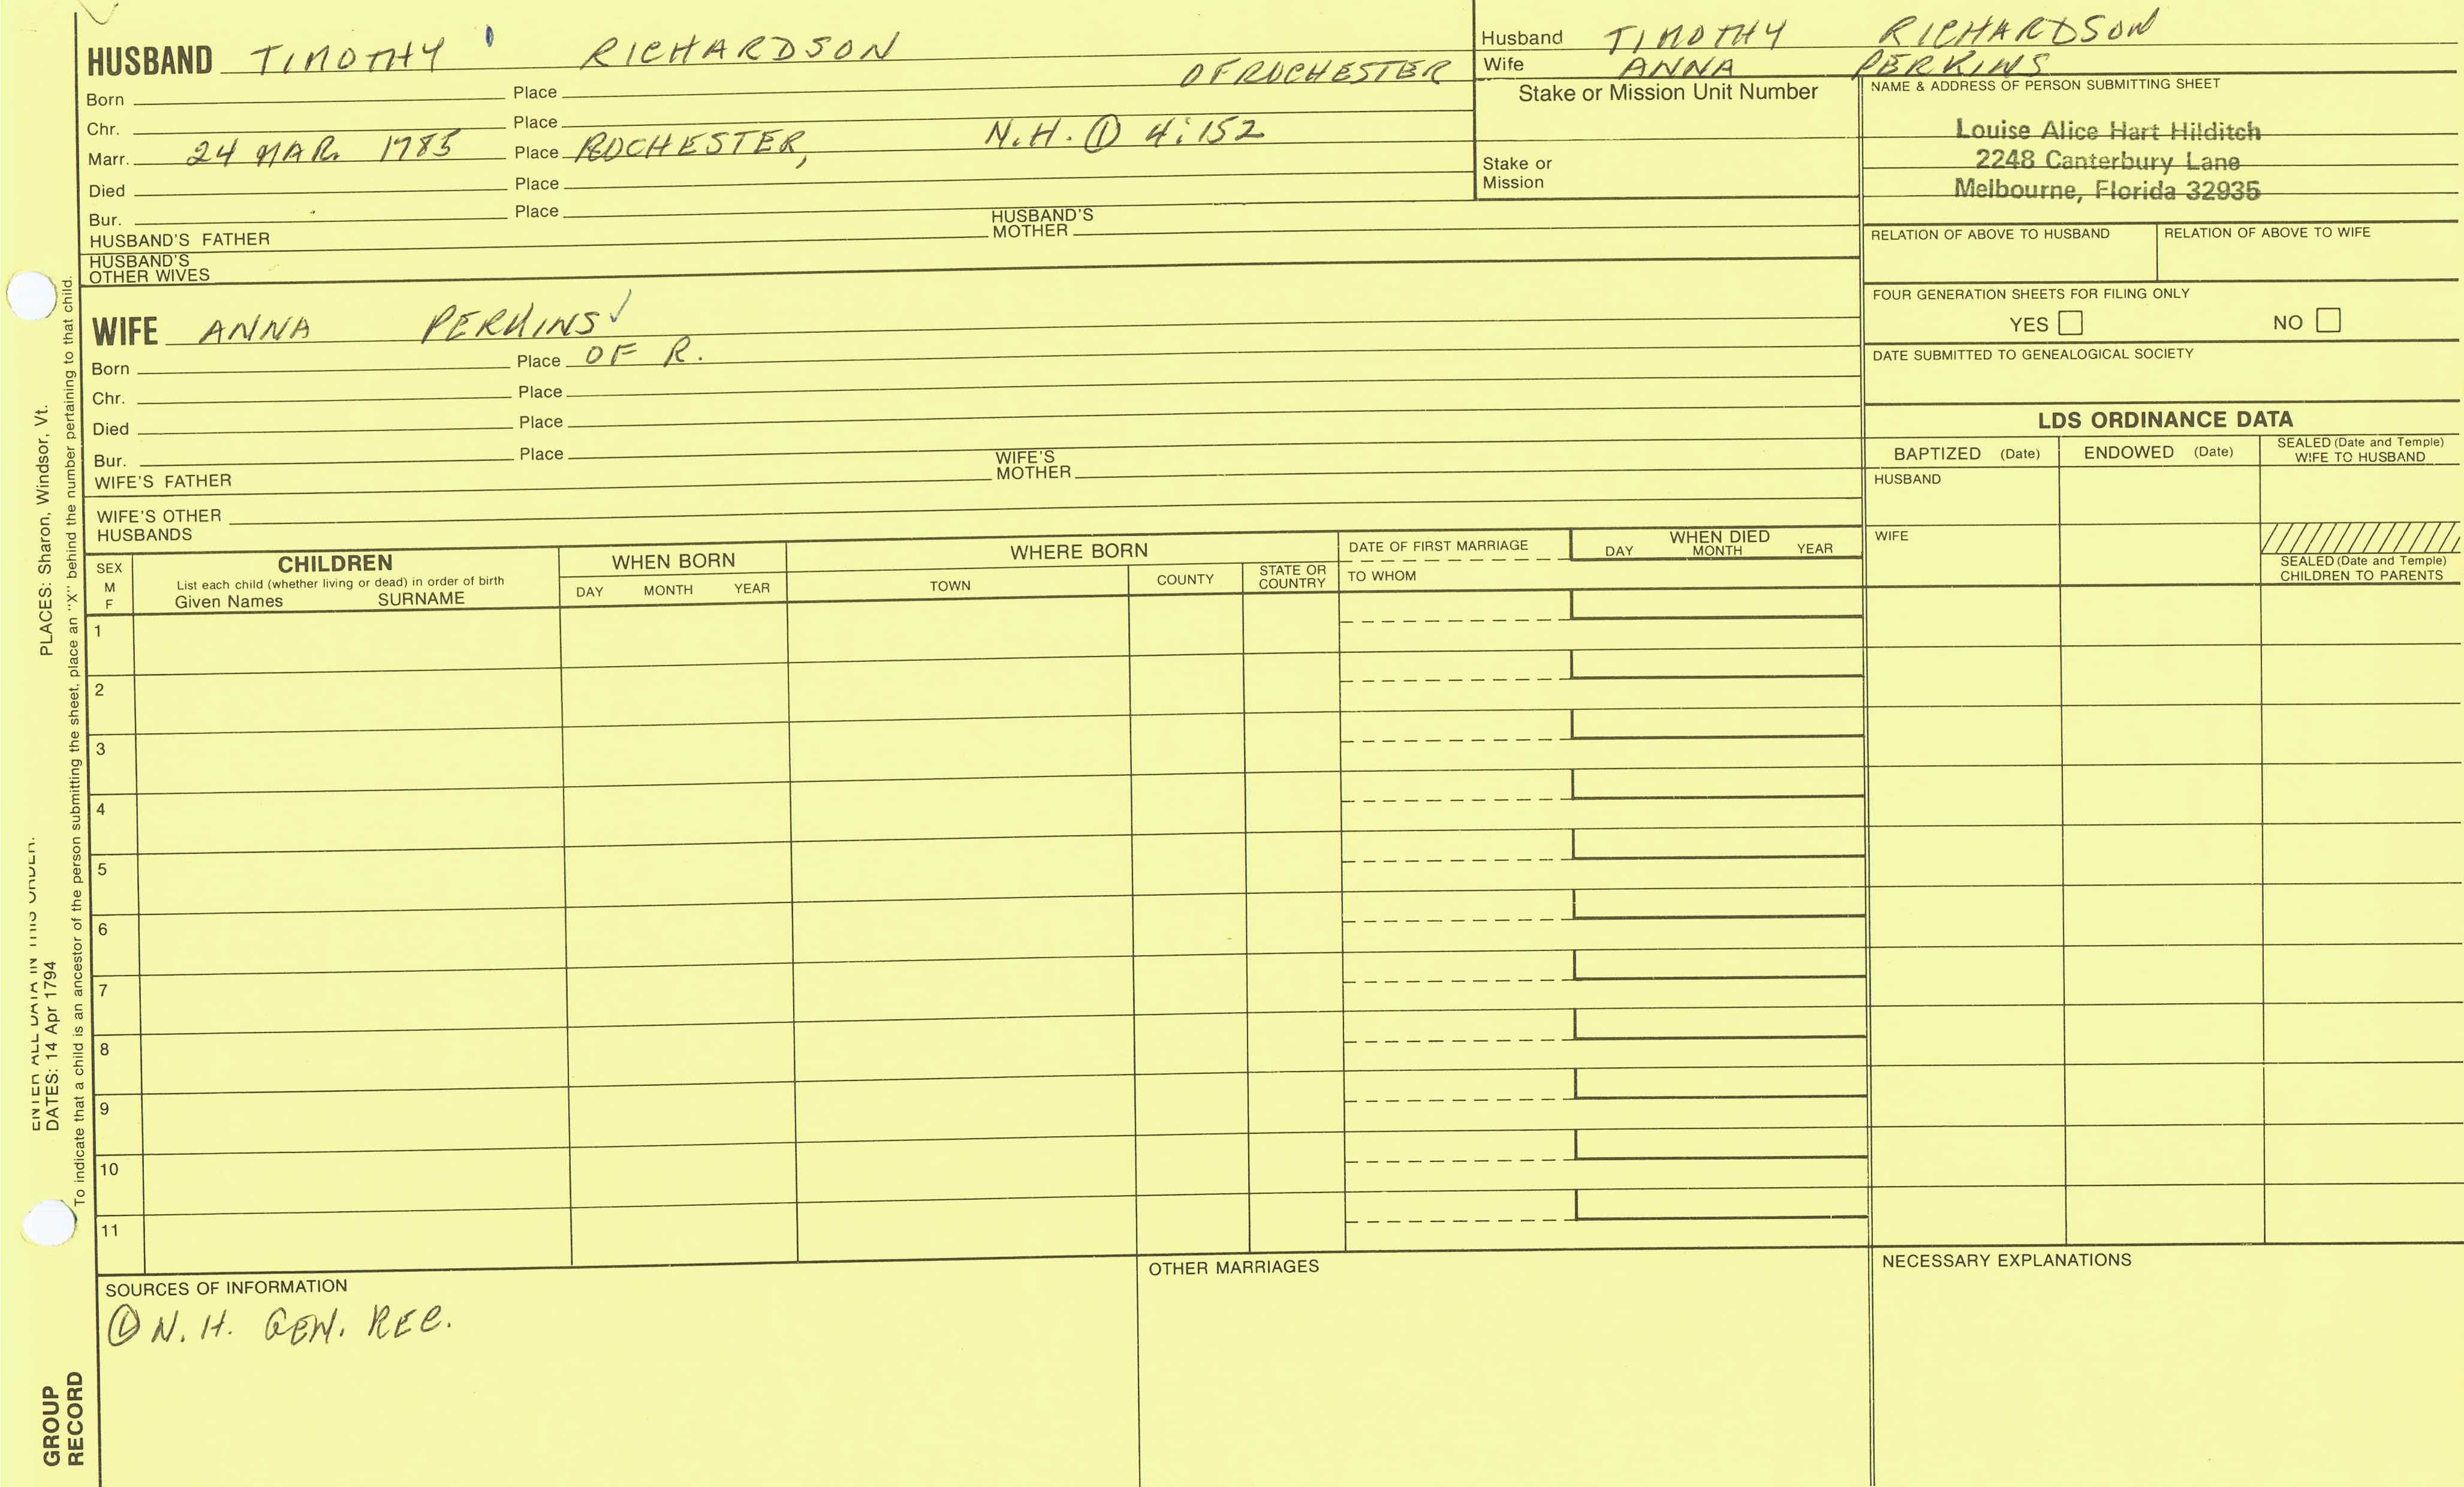 HUSBAND TIMOTHY RICHARDSON
OF ROCHESTER
Born Place
Chr. Place
Marr. 24 MAR. 1785 Place ROCHESTER, N.H. ① 4:152
Died Place
Bur. Place
HUSBAND'S FATHER HUSBAND'S MOTHER
HUSBAND'S
OTHER WIVES
WIFE ANNA PERKINS ✓
Born Place OF R.
Chr. Place
Died Place
Bur. Place
WIFE'S FATHER WIFE'S MOTHER
WIFE'S OTHER
HUSBANDS
Husband TIMOTHY RICHARDSON
Wife ANNA PERKINS
Stake or Mission Unit Number
Stake or
Mission
NAME & ADDRESS OF PERSON SUBMITTING SHEET
Louise Alice Hart Hilditch
2248 Canterbury Lane
Melbourne, Florida 32935
RELATION OF ABOVE TO HUSBAND RELATION OF ABOVE TO WIFE
FOUR GENERATION SHEETS FOR FILING ONLY
YES NO
DATE SUBMITTED TO GENEALOGICAL SOCIETY
LDS ORDINANCE DATA
BAPTIZED (Date) ENDOWED (Date) SEALED (Date and Temple)
WIFE TO HUSBAND
HUSBAND
WIFE
SEALED (Date and Temple)
CHILDREN TO PARENTS
SEX
M
F
CHILDREN
List each child (whether living or dead) in order of birth
Given Names SURNAME
WHEN BORN
DAY MONTH YEAR
WHERE BORN
TOWN COUNTY STATE OR
COUNTRY
DATE OF FIRST MARRIAGE
TO WHOM
WHEN DIED
DAY MONTH YEAR
1
2
3
4
5
6
7
8
9
10
11
SOURCES OF INFORMATION
① N.H. GEN. REC.
OTHER MARRIAGES
NECESSARY EXPLANATIONS
ENTER ALL DATA IN THIS ORDER.
DATES: 14 Apr 1794
PLACES: Sharon, Windsor, Vt.
To indicate that a child is an ancestor of the person submitting the sheet, place an "X" behind the number pertaining to that child.
GROUP
RECORD